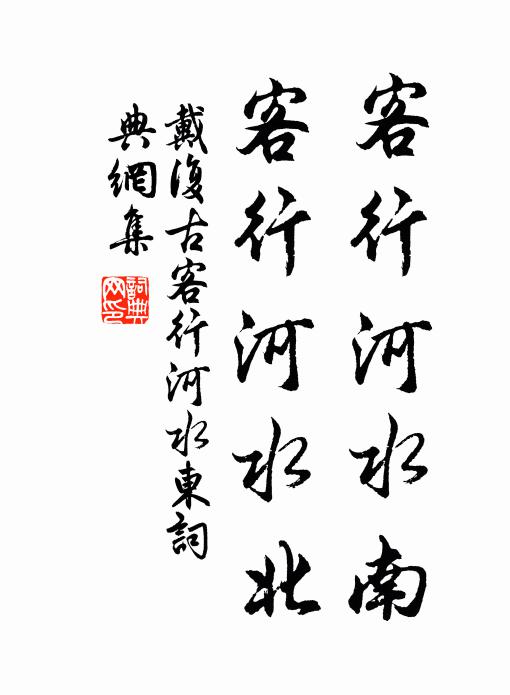 客行河水南
客行河水北
戴復古客行河水東詞
典網集
詞典
网印